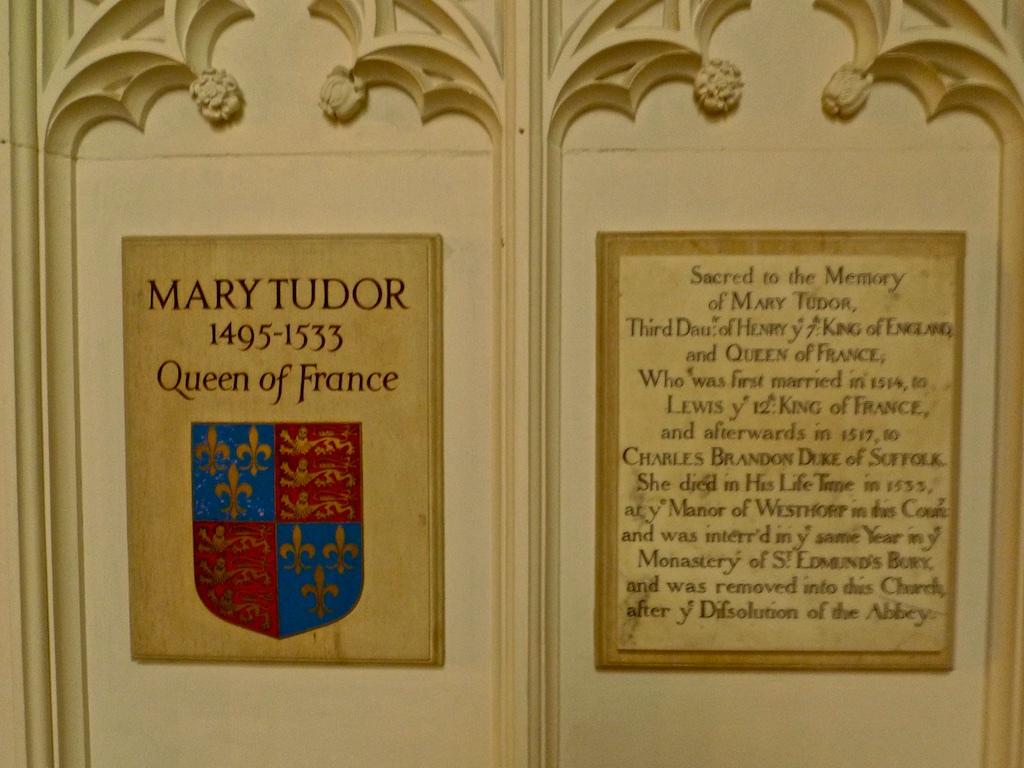 MARY TUDOR
1495-1533
Queen of France
Sacred to the Memory
of MARY TUDOR,
Third Dau.r of HENRY ye 7.th KING of ENGLAND,
and QUEEN of FRANCE,
Who was first married in 1514, to
LEWIS ye 12.th KING of FRANCE,
and afterwards in 1517, to
CHARLES BRANDON DUKE of SUFFOLK.
She died in His Life Time in 1533,
at ye Manor of WESTHORP in this Coun:
and was interr'd in ye same Year in ye
Monastery of St. EDMUND'S BURY,
and was removed into this Church,
after ye Dissolution of the Abbey.